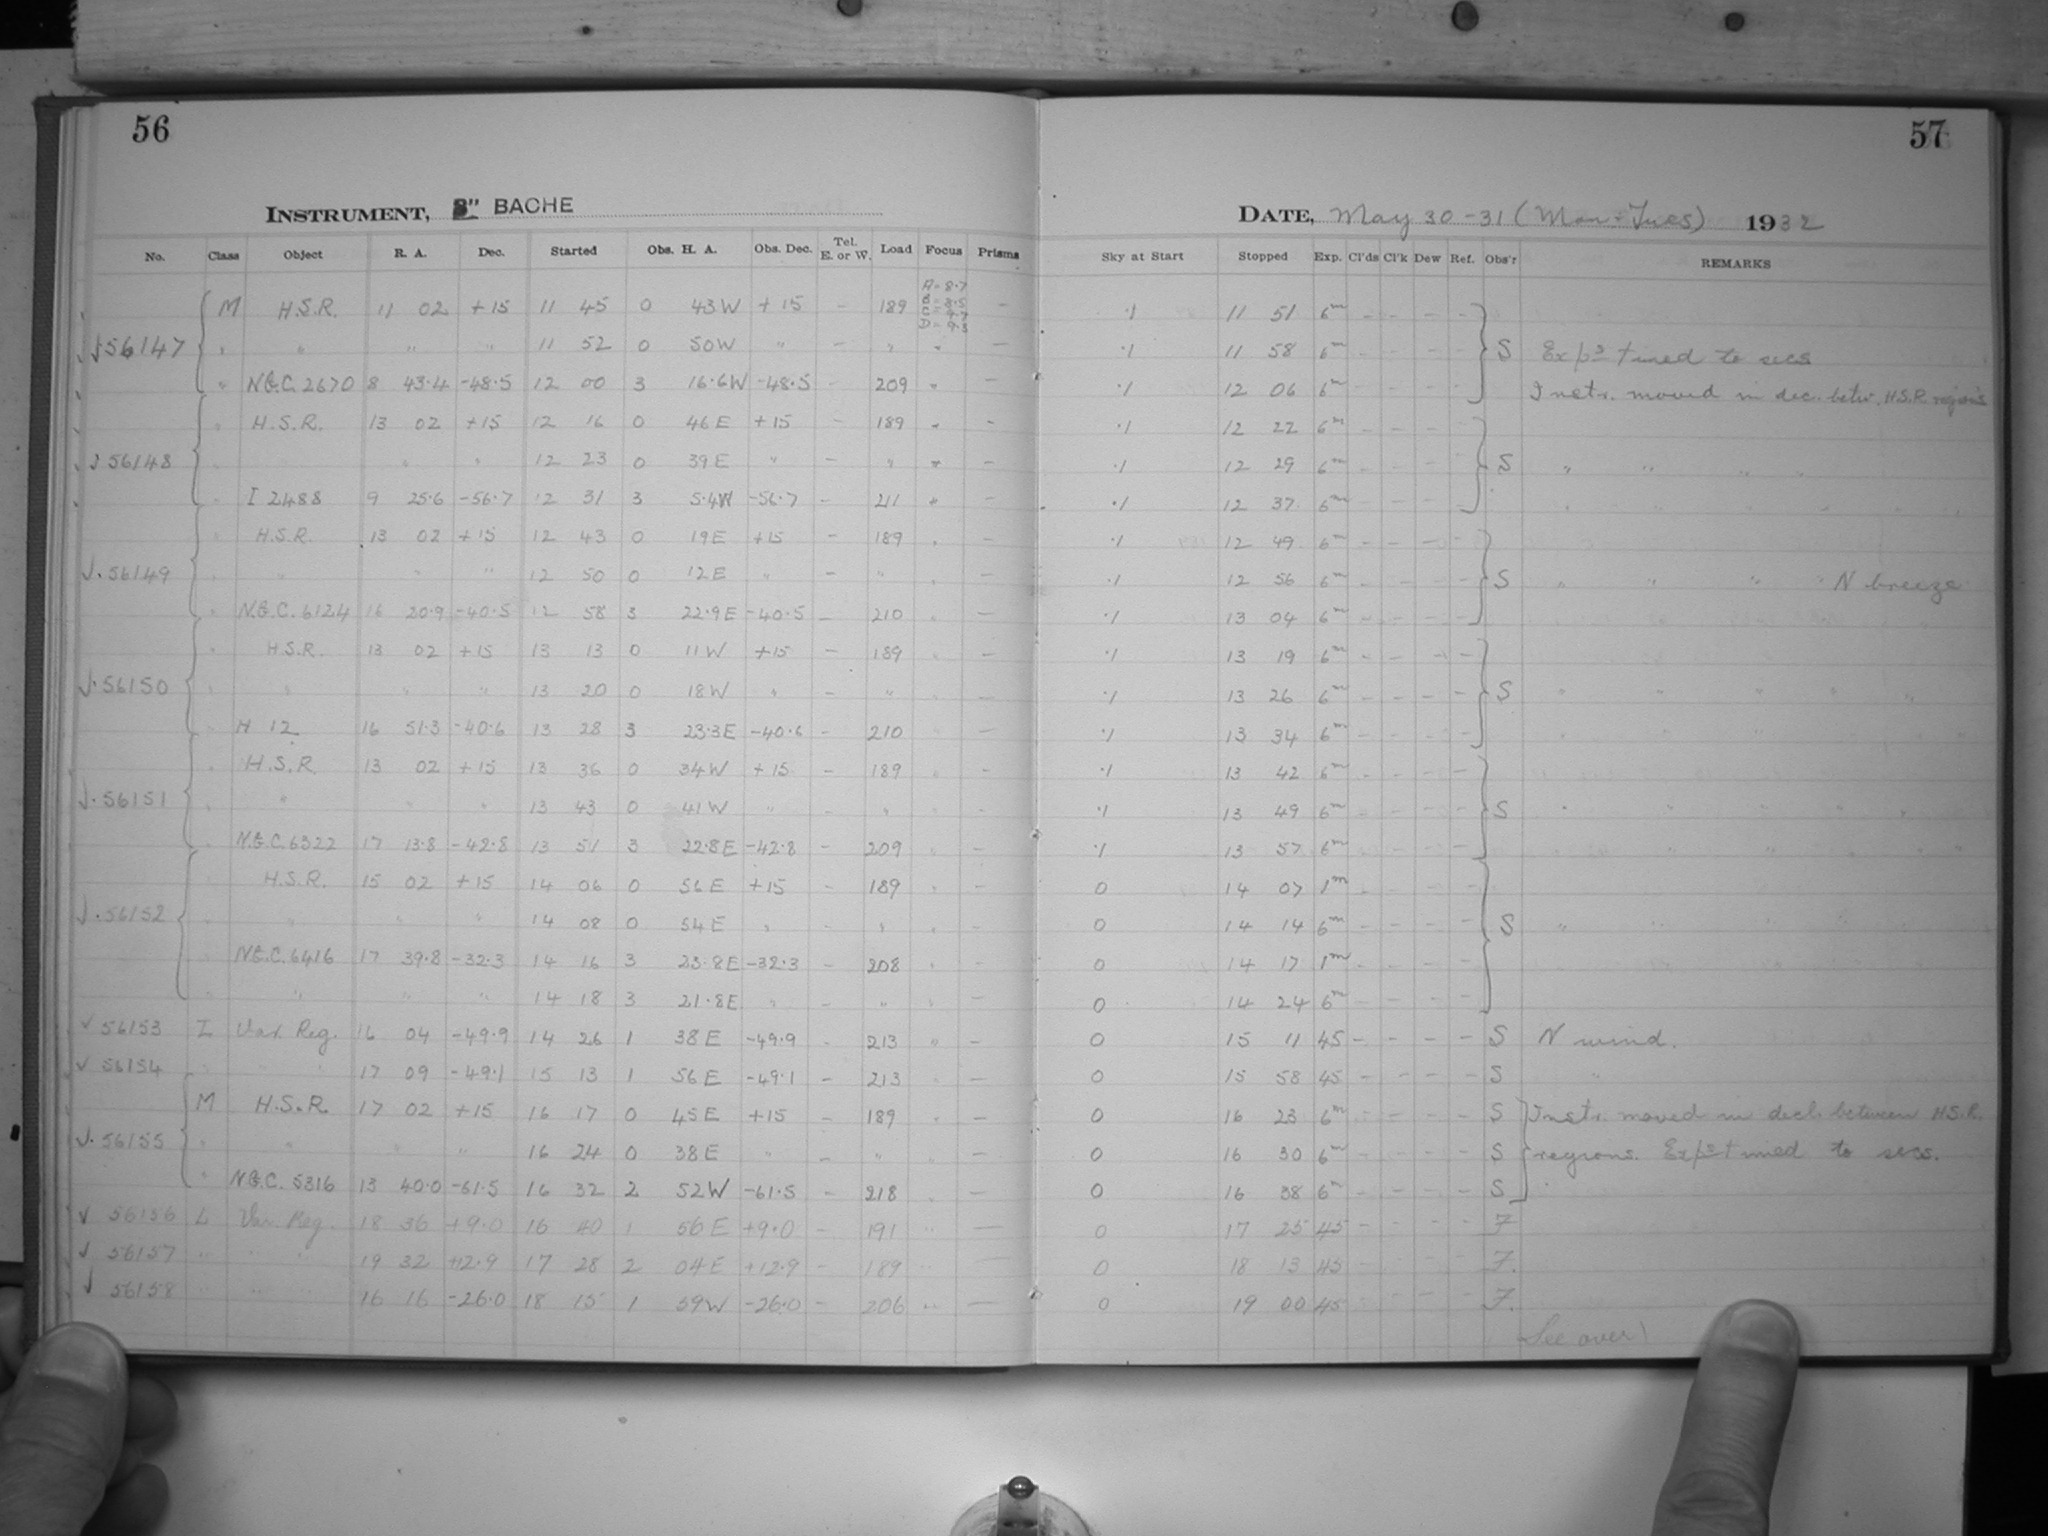 56
INSTRUMENT, 8" BACHE
No. Class Object R. A. Dec. Started Obs. H. A. Obs. Dec. Tel. E. or W. Load Focus Prisms
M H.S.R. 11 02 +15 11 45 0 43W +15 - 189 A=8.7 B=8.5 C=9.7 D=9.3 -
56147 " " " " 11 52 0 50W " - " " -
" N.G.C. 2670 8 43.4 -48.5 12 00 3 16.6W -48.5 - 209 " -
" H.S.R. 13 02 +15 12 16 0 46E +15 - 189 " -
56148 " " 12 23 0 39E " - " " -
" I 2488 9 25.6 -56.7 12 31 3 5.4W -56.7 - 211 " -
" H.S.R. 13 02 +15 12 43 0 19E +15 - 189 " -
56149 " " " " 12 50 0 12E " - " " -
" N.G.C. 6124 16 20.9 -40.5 12 58 3 22.9E -40.5 - 210 " -
" H.S.R. 13 02 +15 13 13 0 11W +15 - 189 " -
56150 " " " " 13 20 0 18W " - " " -
" H 12 16 51.3 -40.6 13 28 3 23.3E -40.6 - 210 " -
" H.S.R. 13 02 +15 13 36 0 34W +15 - 189 " -
56151 " " " " 13 43 0 41W " - " " -
" N.G.C. 6322 17 13.8 -42.8 13 51 3 22.8E -42.8 - 209 " -
" H.S.R. 15 02 +15 14 06 0 56E +15 - 189 " -
56152 " " " " 14 08 0 54E " - " " -
" N.G.C. 6416 17 39.8 -32.3 14 16 3 23.8E -32.3 - 208 " -
" " " " 14 18 3 21.8E " - " " -
56153 L Var. Reg. 16 04 -49.9 14 26 1 38E -49.9 - 213 " -
56154 " " " 17 09 -49.1 15 13 1 56E -49.1 - 213 " -
M H.S.R. 17 02 +15 16 17 0 45E +15 - 189 " -
56155 " " " " 16 24 0 38E " - " " -
" N.G.C. 5316 13 40.0 -61.5 16 32 2 52W -61.5 - 218 " -
56156 L Var. Reg. 18 36 +9.0 16 40 1 56E +9.0 - 191 " -
56157 " " " 19 32 +12.9 17 28 2 04E +12.9 - 189 " -
56158 " " " 16 16 -26.0 18 15 1 59W -26.0 - 206 " -
57
DATE, May 30-31 (Mon + Tues) 1932
Sky at Start Stopped Exp. Cl'ds Cl'k Dew Ref. Obs'r REMARKS
.1 11 51 6m - - - -
.1 11 58 6m - - - - S Exps timed to secs
.1 12 06 6m - - - - Instr. moved in dec. betw. H.S.R. regions
.1 12 22 6m - - - -
.1 12 29 6m - - - - S " " " "
.1 12 37 6m - - - - " " " " "
.1 12 49 6m - - - -
.1 12 56 6m - - - - S " " " " N breeze
.1 13 04 6m - - - -
.1 13 19 6m - - - -
.1 13 26 6m - - - - S " " " " "
.1 13 34 6m - - - - " " " " "
.1 13 42 6m - - - -
.1 13 49 6m - - - - S " " " " "
.1 13 57 6m - - - - " " " " "
0 14 07 1m - - - -
0 14 14 6m - - - - S " " " " "
0 14 17 1m - - - -
0 14 24 6m - - - -
0 15 11 45 - - - - S N wind.
0 15 58 45 - - - - S "
0 16 23 6m - - - - S Instr. moved in decl. between H.S.R.
0 16 30 6m - - - - S regions. Exps timed to secs.
0 16 38 6m - - - - S
0 17 25 45 - - - - F
0 18 13 45 - - - - F.
0 19 00 45 - - - - F.
See over)